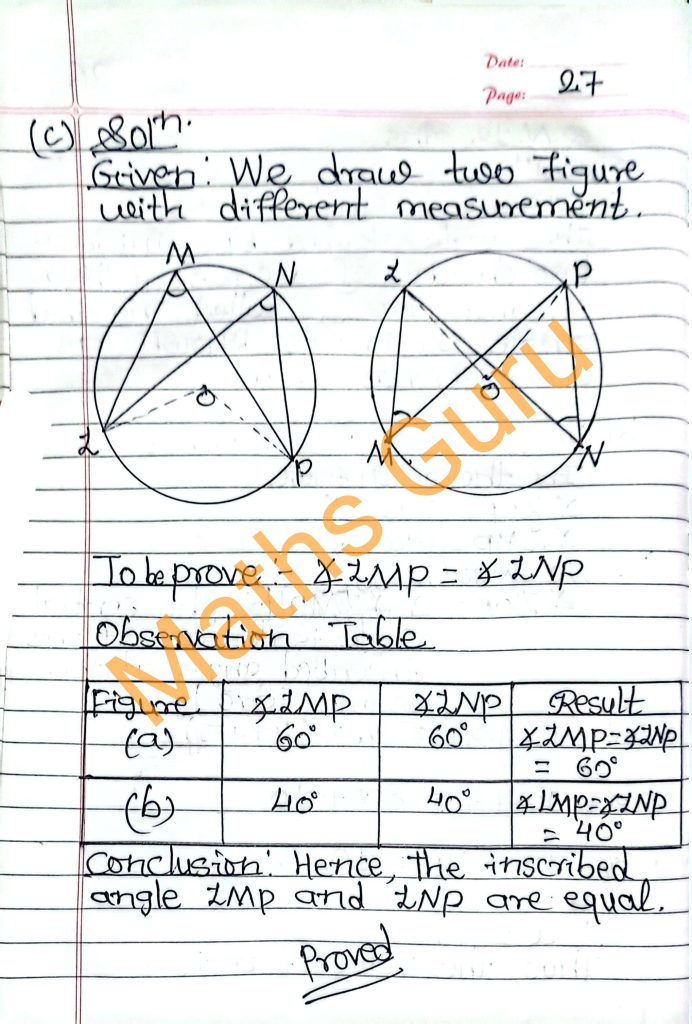 Date:
Page: 27
(c) Solⁿ.
Given: We draw two figure
with different measurement.
M N L P
O O
L P M N
To be prove :- ∡LMP = ∡LNP
Observation Table
Figure ∡LMP ∡LNP Result
(a) 60° 60° ∡LMP=∡LNP
= 60°
(b) 40° 40° ∡LMP=∡LNP
= 40°
Conclusion: Hence, the inscribed
angle LMP and LNP are equal.
Proved
Maths Guru